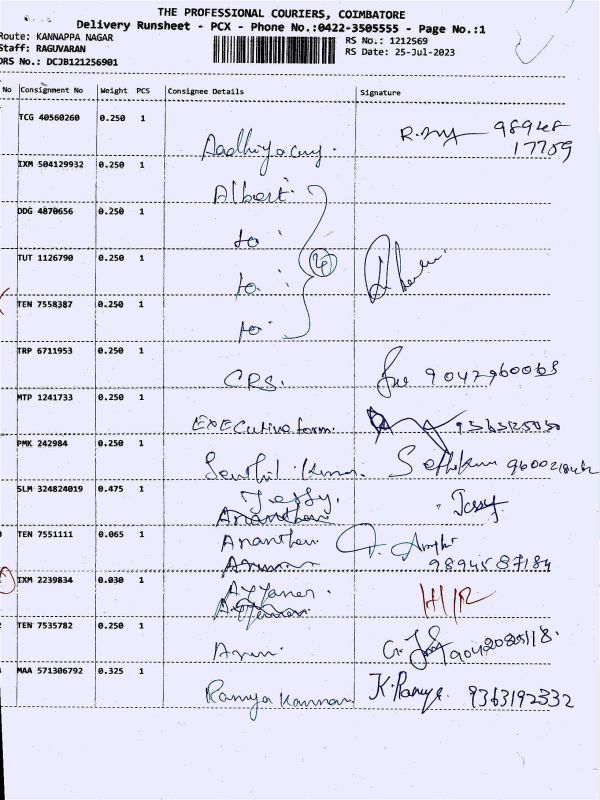 THE PROFESSIONAL COURIERS, COIMBATORE
Delivery Runsheet - PCX - Phone No.:0422-3505555 - Page No.:1
Route: KANNAPPA NAGAR
RS No.: 1212569
Staff: RAGUVARAN
RS Date: 25-Jul-2023
DRS No.: DCJB121256901
No Consignment No Weight PCS Consignee Details Signature
TCG 40560260 0.250 1
98948
17709
IXM 504129932 0.250 1
Albert
DDG 4870656 0.250 1
to
TUT 1126790 0.250 1
to
4
TEN 7558387 0.250 1
to
TRP 6711953 0.250 1
CRS. 9042960065
MTP 1241733 0.250 1
EXECutive form.
PMK 242984 0.250 1
Senthil Kumar
SLM 324824019 0.475 1
Jessy. Jessy
TEN 7551111 0.065 1
Ananthan
9894587184
IXM 2239834 0.030 1
Ayyaner.
TEN 7535782 0.250 1
Arun.
MAA 571306792 0.325 1
Ramya Kannan K. Ramya. 9363192332